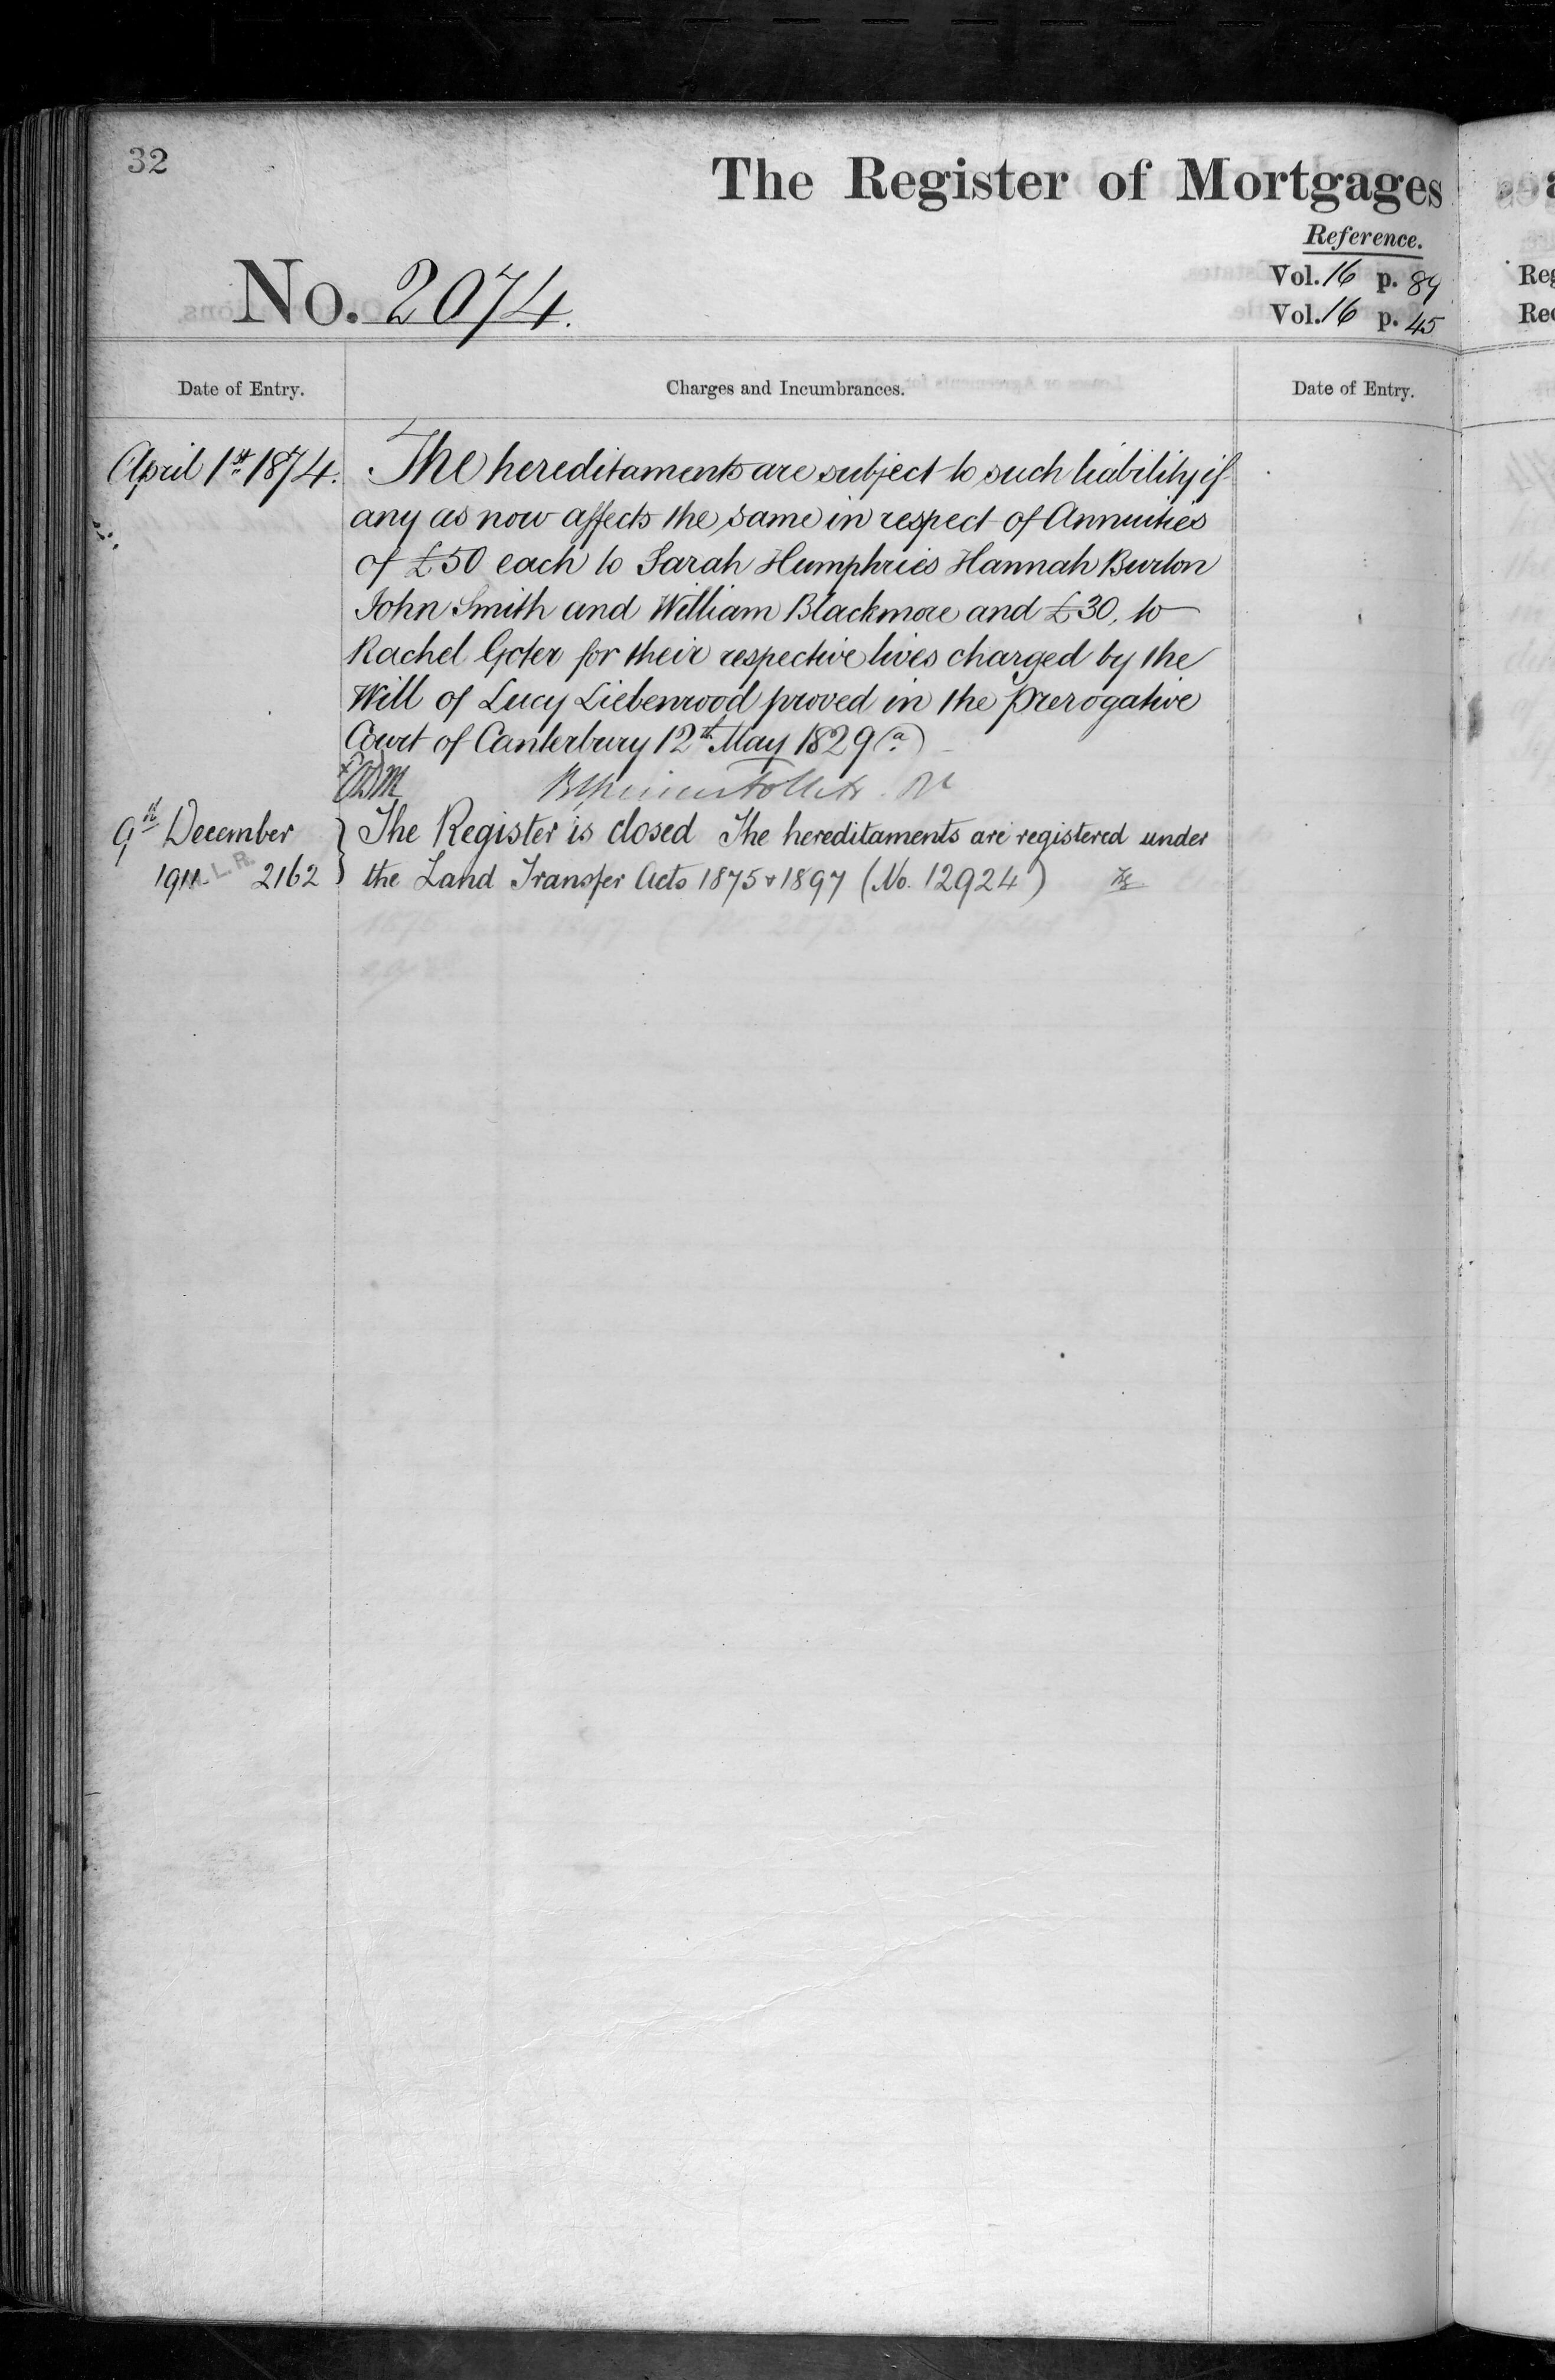 32
The Register of Mortgages
Reference.
No. 2074.
Vol. 16 p. 89
Vol. 16 p. 45
Date of Entry.
Charges and Incumbrances.
Date of Entry.
April 1st 1874.
The hereditaments are subject to such liability if
any as now affects the same in respect of Annuities
of £50 each to Sarah Humphries Hannah Burton
John Smith and William Blackmore and £30, to
Rachel Goter for their respective lives charged by the
Will of Lucy Liebenrood proved in the Prerogative
Court of Canterbury 12th May 1829 (a)
9th December
1911. L.R. 2162
The Register is closed The hereditaments are registered under
the Land Transfer Acts 1875 & 1897 (No. 12924)
Reg